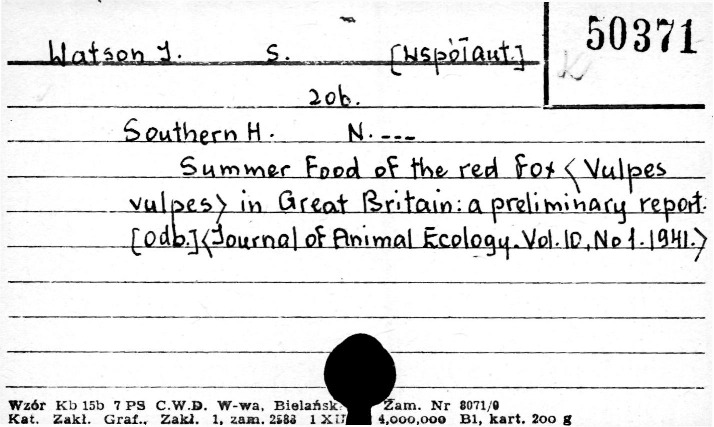 50371
Watson J. S. [Współaut.]
zob.
Southern H. N. ---
Summer Food of the red fox <Vulpes
vulpes> in Great Britain: a preliminary report.
[Odb.] <Journal of Animal Ecology. Vol. 10, No 1. 1941.>
Wzór Kb 15b 7 PS C.W.D. W-wa, Bielańsk Zam. Nr 8071/0
Kat. Zakł. Graf., Zakł. 1, zam. 2583 1 XII 4,000,000 B1, kart. 200 g